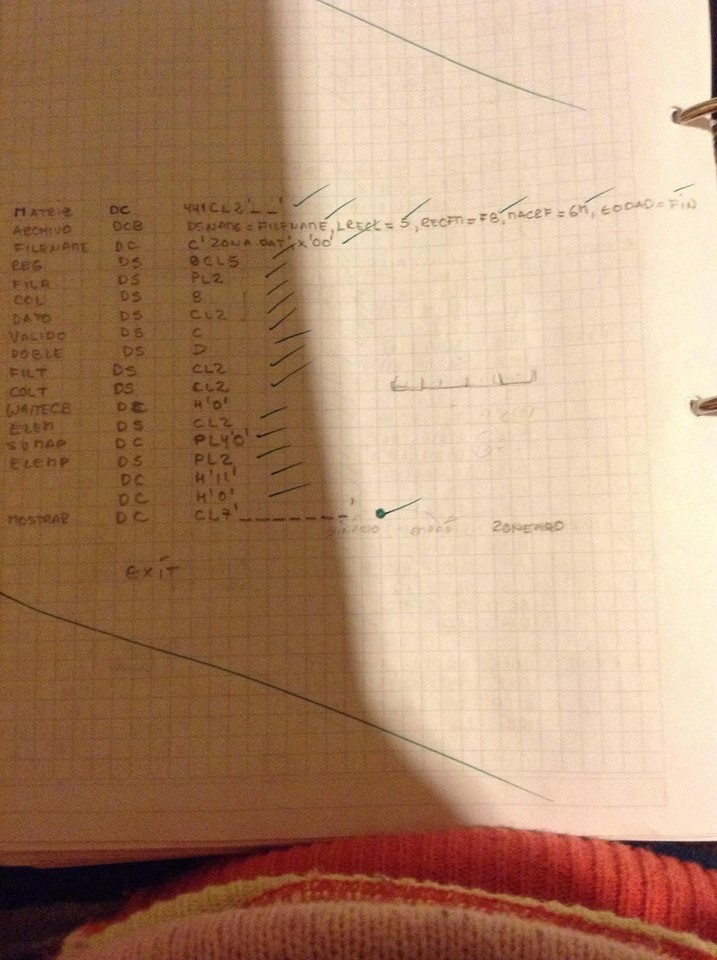 MATRIZ DC 441CL2'_ _'
ARCHIVO DCB DSNAME=FILENAME, LRECL=5, RECFM=FB, MACRF=GM, EODAD=FIN
FILENAME DC C'ZONA.DAT', X'00'
REG DS 0CL5
FILA DS PL2
COL DS B
DATO DS CL2
VALIDO DS C
DOBLE DS D
FILT DS CL2
COLT DS CL2
WRITECB DC H'0'
ELEM DS CL2
SUMAP DC PL4'0'
ELEMP DS PL2
DC H'11'
DC H'0'
MOSTRAR DC CL7'_ _ _ _ _ _ _' ZONEADO
EXIT